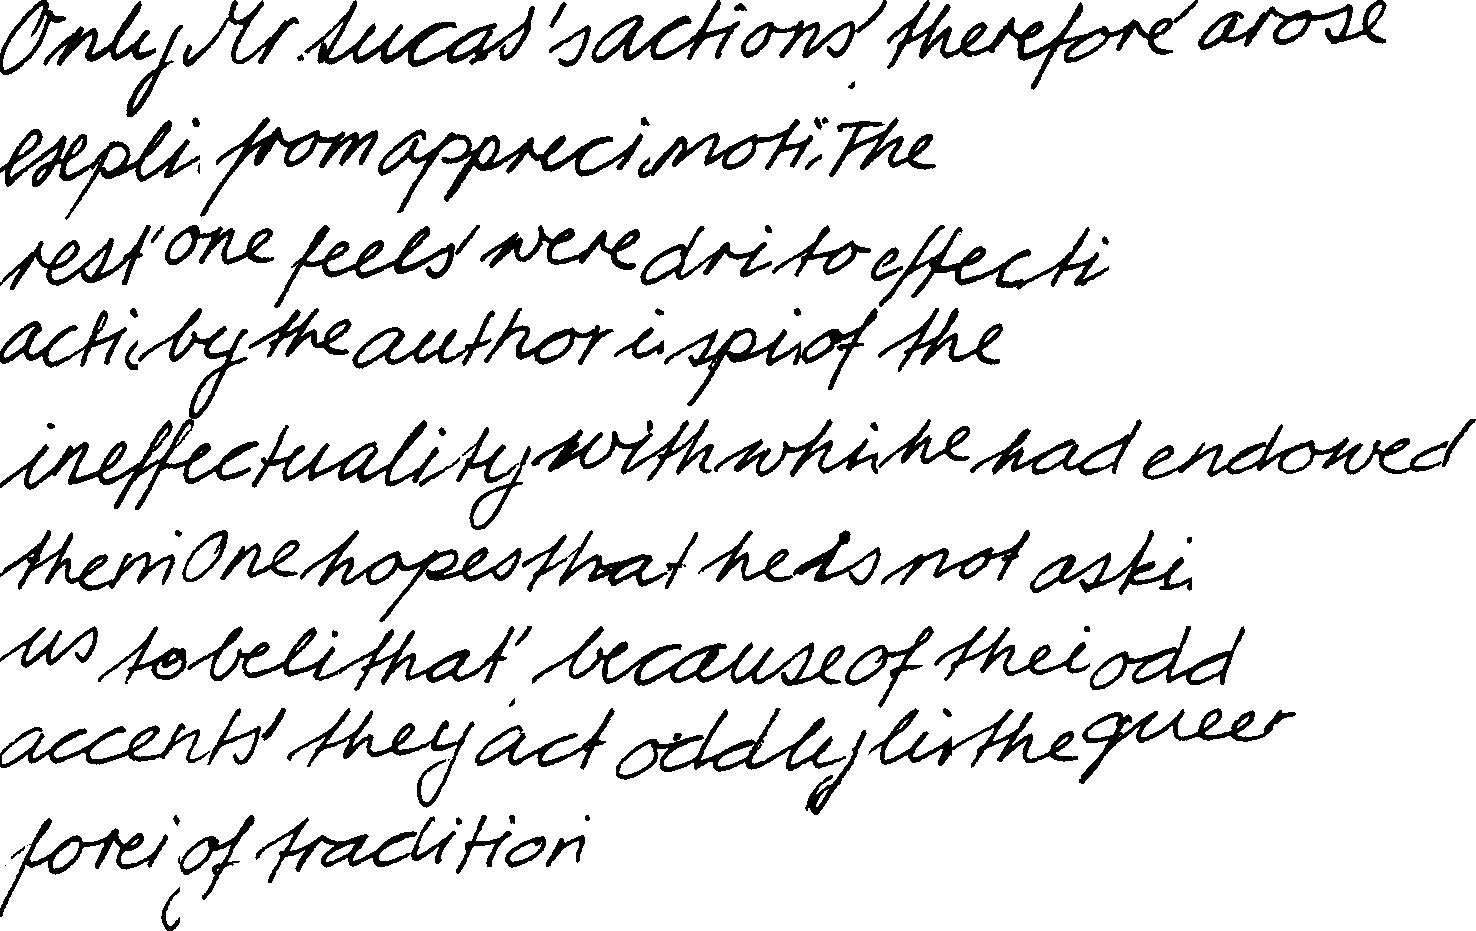 Only Mr. Lucas's actions, therefore, arose
expli. from appreci. moti. The
rest, one feels, were dri to effecti
acti. by the author i. spi. of the
ineffectuality with whi. he had endowed
them One hopes that he is not aski.
us to beli that, because of thei odd
accents, they act oddly li. the queer
forei of tradition